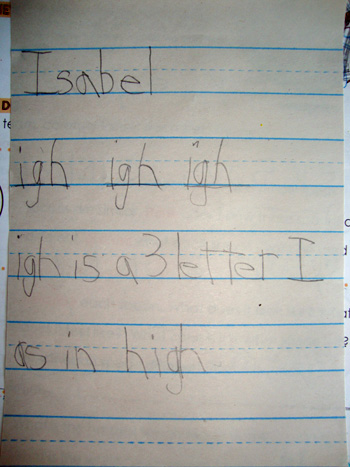 Isabel
igh igh igh
igh is a 3 letter I
as in high